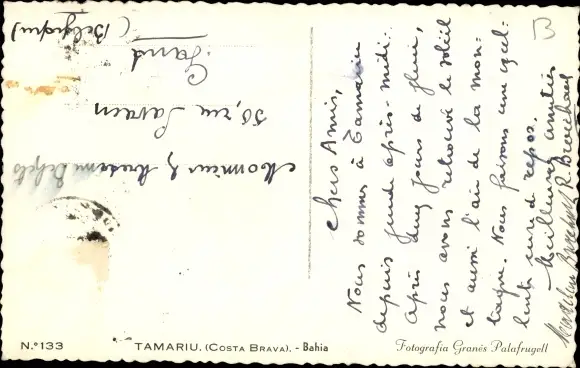 Chers Amis,
Nous sommes à Tamariu
depuis jeudi après-midi.
Après deux jours de pluie,
nous avons retrouvé le soleil
et aussi l'air de la mon-
tagne. Nous faisons une excel-
lente cure de repos.
Meilleures amitiés
R. Beeckhaut
Monsieur & Madame
50, rue
Gand
(Belgique)
B
N.º 133
TAMARIU. (COSTA BRAVA). - Bahia
Fotografia Granés Palafrugell